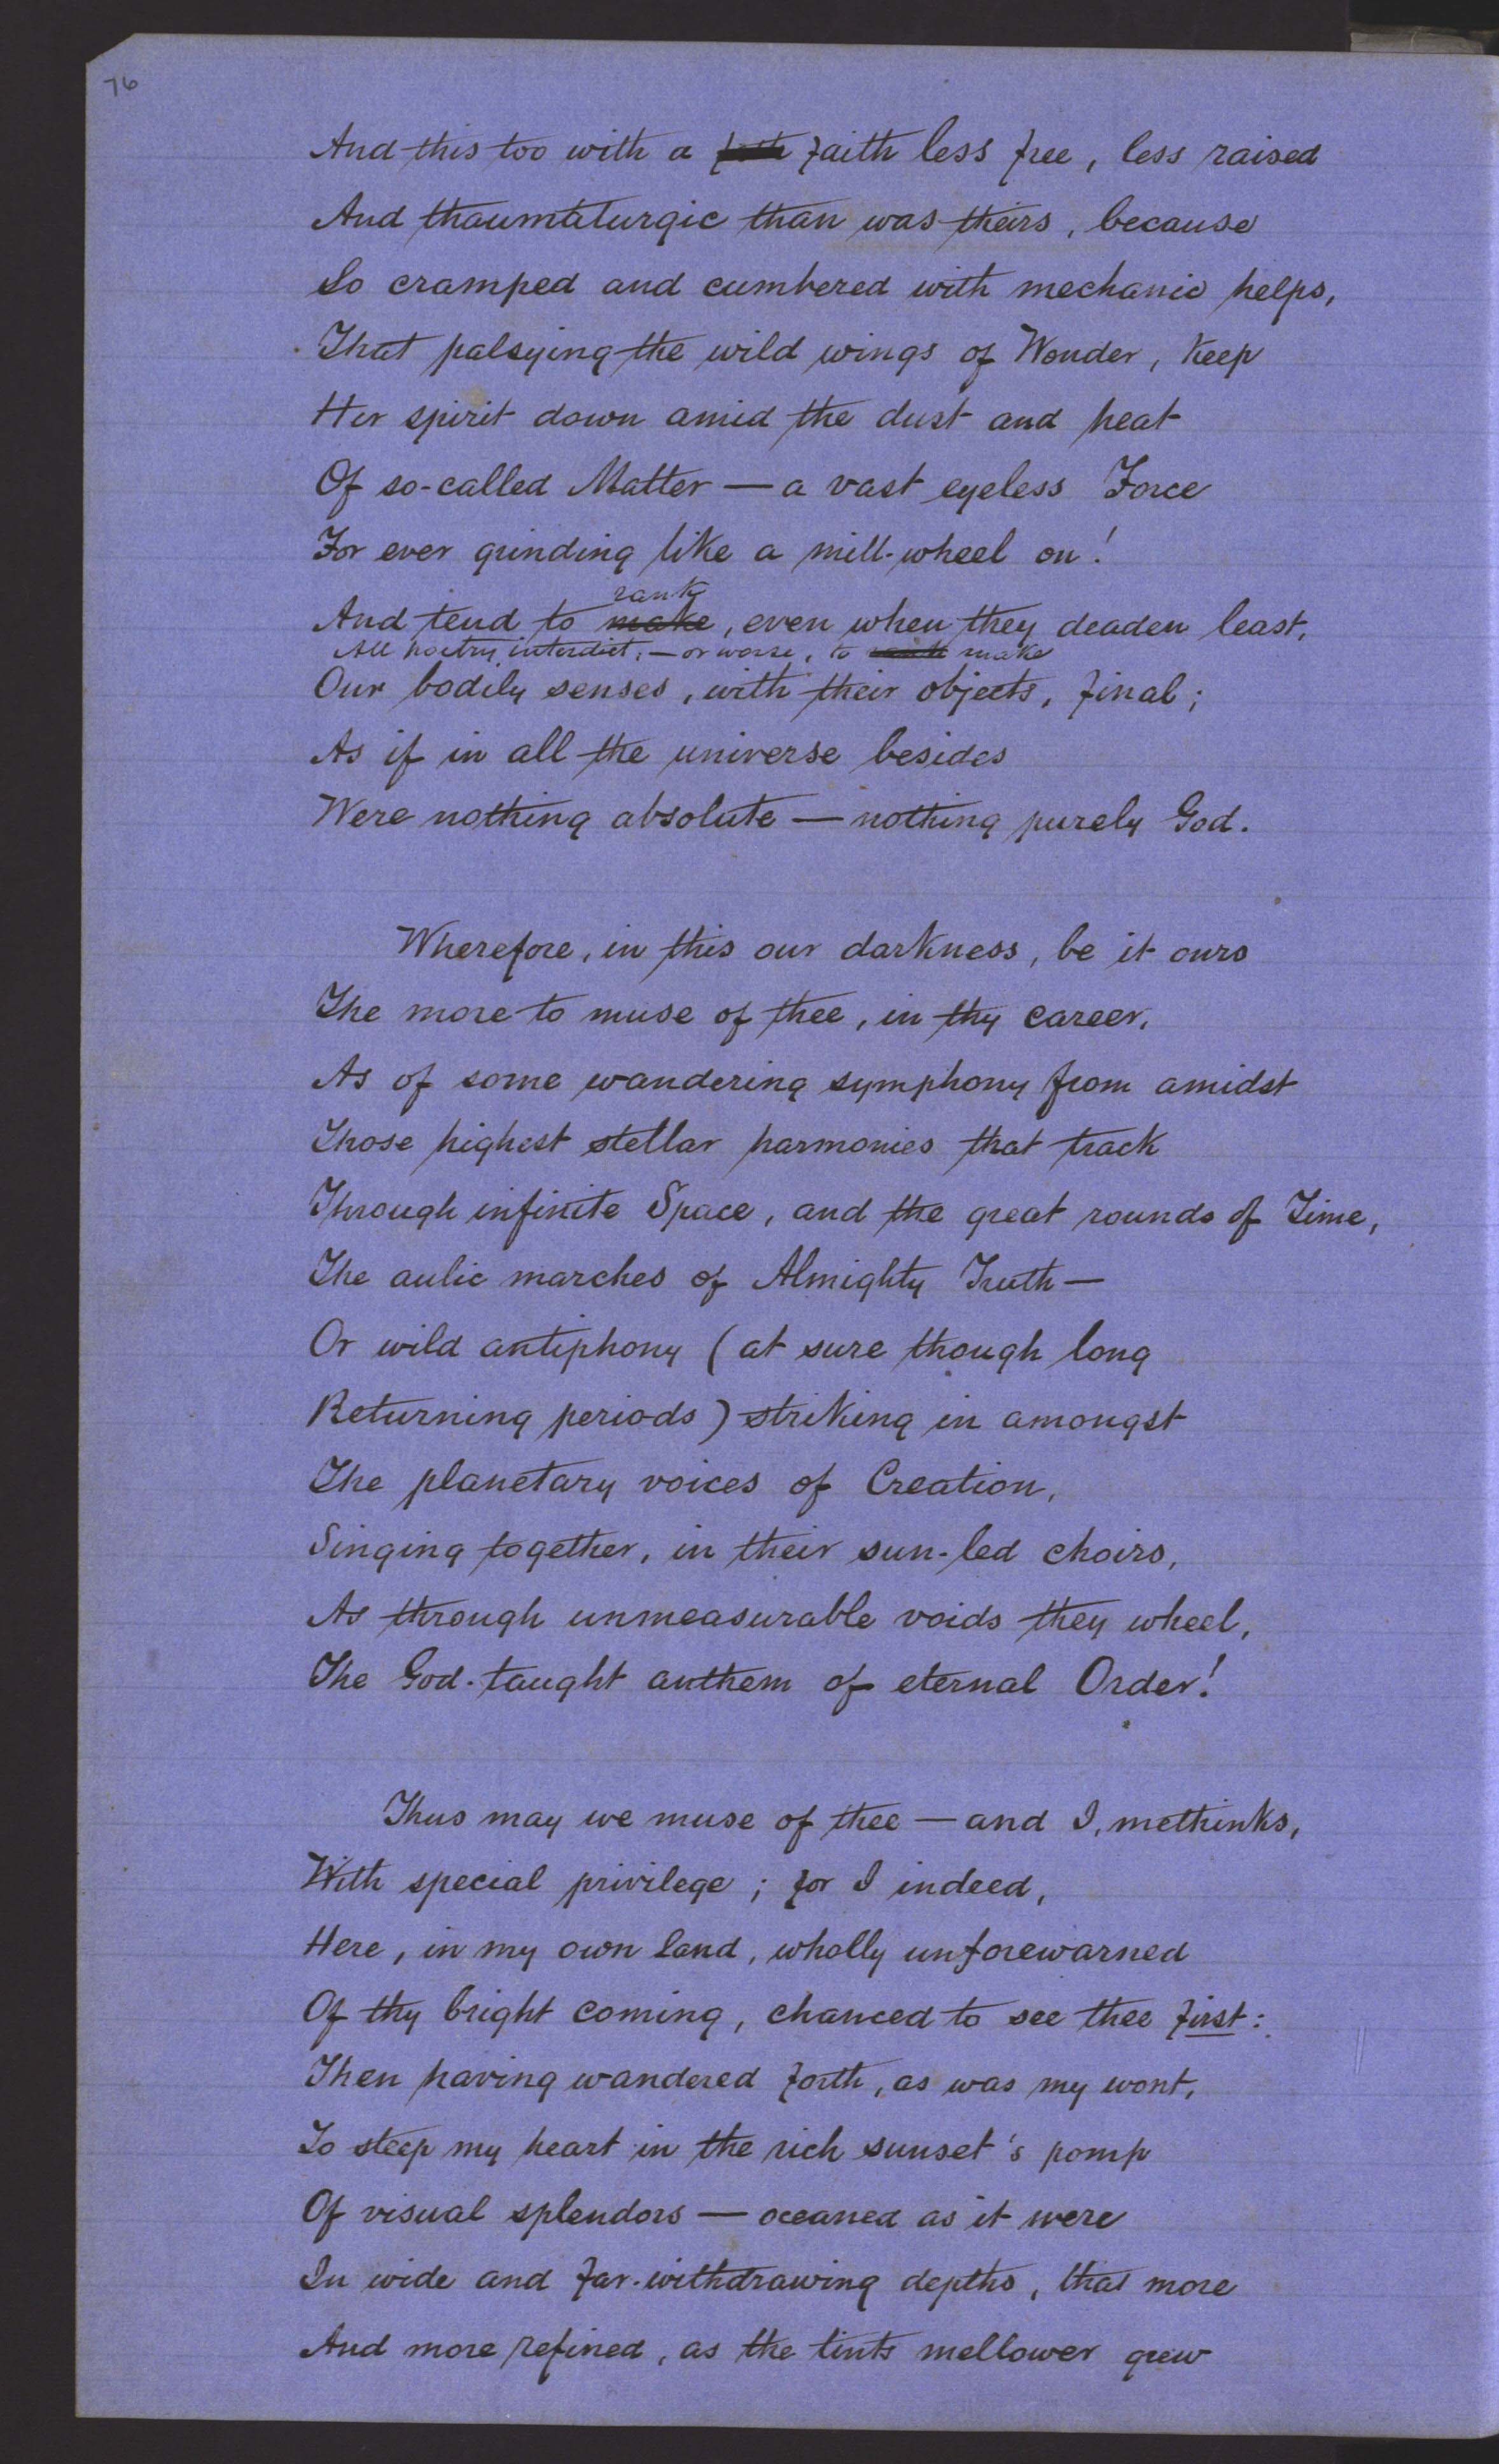 76
And this too with a faith less free, less raised
And thaumaturgic than was theirs, because
So cramped and cumbered with mechanic helps,
That palsying the wild wings of Wonder, keep
Her spirit down amid the dust and heat
Of so-called Matter — a vast eyeless Force
For ever grinding like a mill-wheel on!
rank
And tend to make, even when they deaden least,
All poetry interdict; — or worse, to make
Our bodily senses, with their objects, final;
As if in all the universe besides
Were nothing absolute — nothing purely God.
Wherefore, in this our darkness, be it ours
The more to muse of thee, in thy career,
As of some wandering symphony from amidst
Those highest stellar harmonies that track
Through infinite Space, and the great rounds of Time,
The aulic marches of Almighty Truth —
Or wild antiphony (at sure though long
Returning periods) striking in amongst
The planetary voices of Creation,
Singing together, in their sun-led choirs,
As through unmeasurable voids they wheel,
The God-taught anthem of eternal Order!
Thus may we muse of thee — and I, methinks,
With special privilege; for I indeed,
Here, in my own land, wholly unforewarned
Of thy bright coming, chanced to see thee first:
Then having wandered forth, as was my wont,
To steep my heart in the rich sunset's pomp
Of visual splendors — oceaned as it were
In wide and far-withdrawing depths, that more
And more refined, as the tints mellower grew